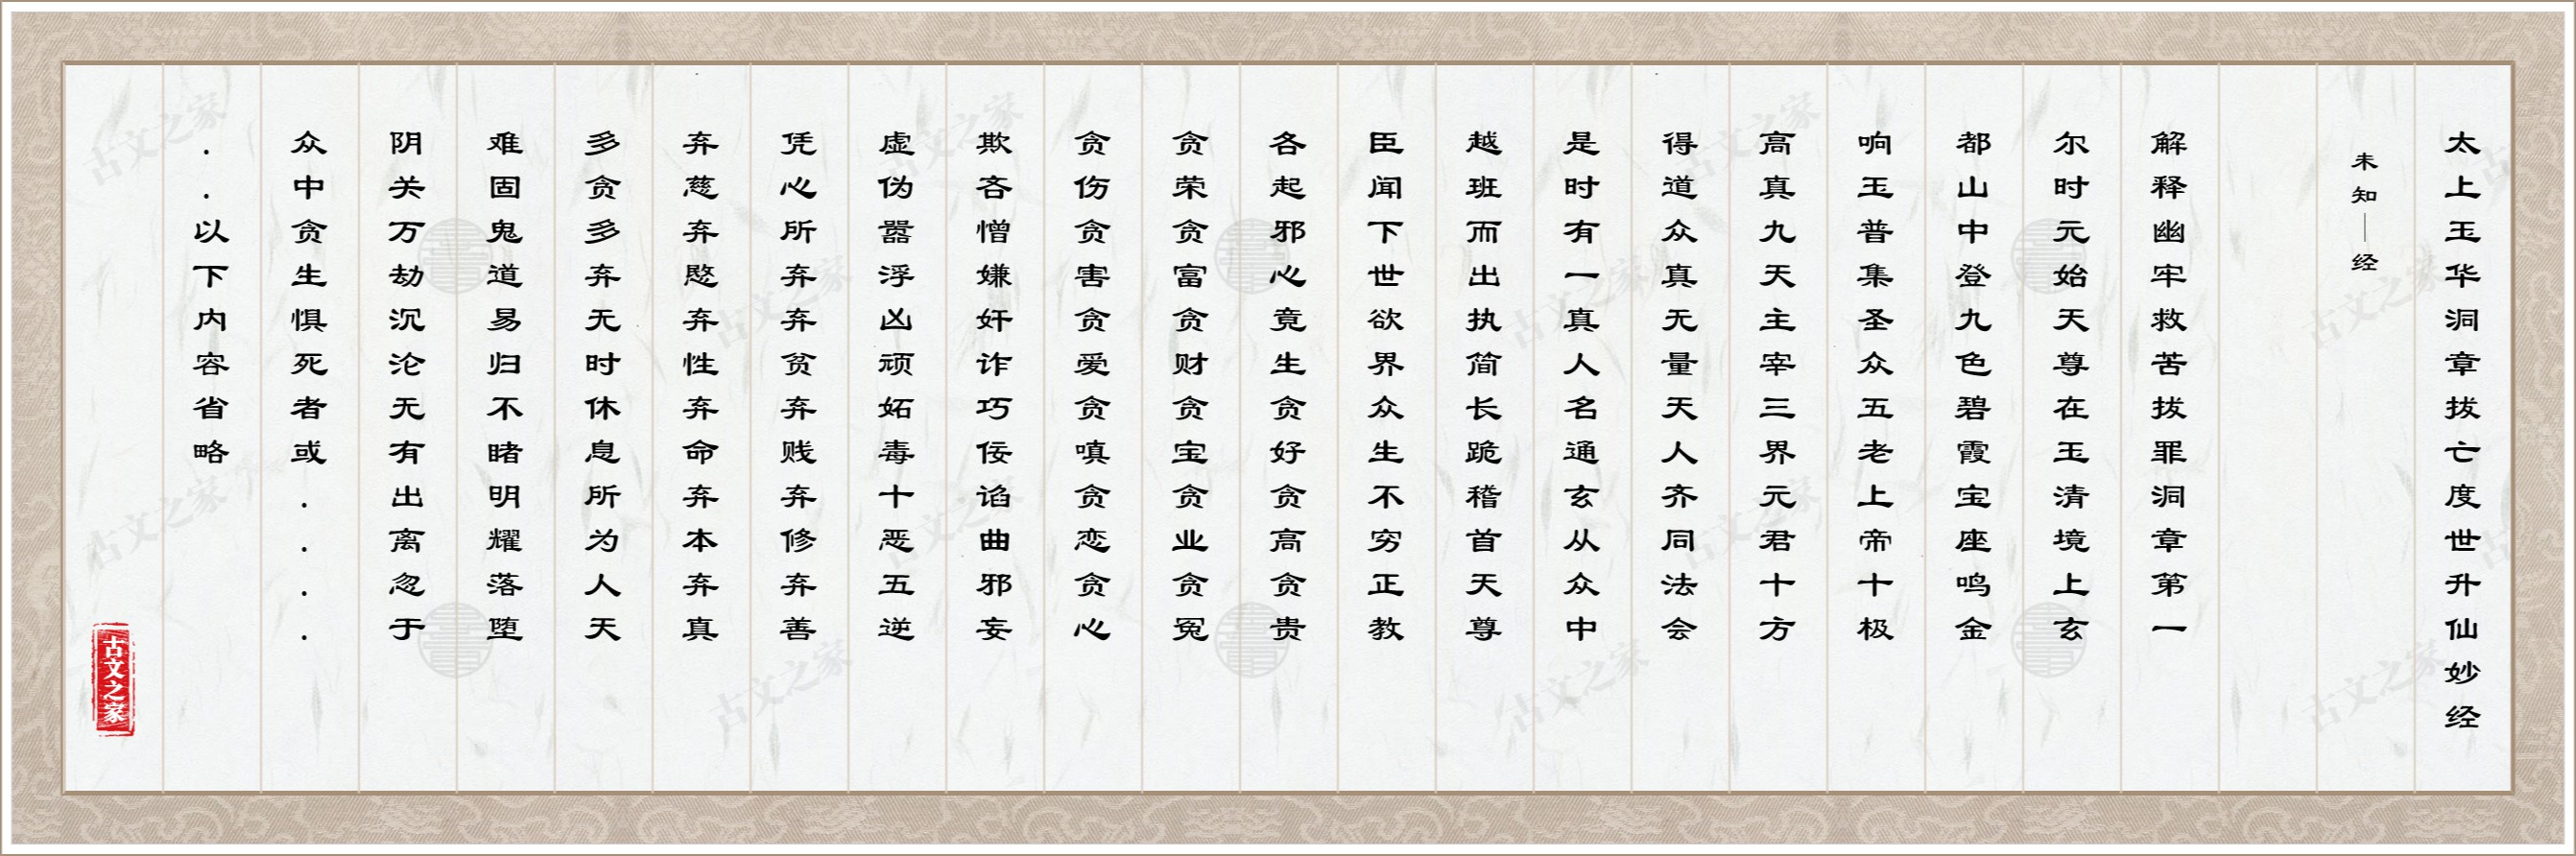 太上玉华洞章拔亡度世升仙妙经
未知｜经
解释幽牢救苦拔罪洞章第一
尔时元始天尊在玉清境上玄
都山中登九色碧霞宝座鸣金
响玉普集圣众五老上帝十极
高真九天主宰三界元君十方
得道众真无量天人齐同法会
是时有一真人名通玄从众中
越班而出执简长跪稽首天尊
臣闻下世欲界众生不穷正教
各起邪心竞生贪好贪高贪贵
贪荣贪富贪财贪宝贪业贪冤
贪伤贪害贪爱贪嗔贪恋贪心
欺吝憎嫌奸诈巧佞谄曲邪妄
虚伪嚣浮凶顽妬毒十恶五逆
凭心所弃弃贫弃贱弃修弃善
弃慈弃愍弃性弃命弃本弃真
多贪多弃无时休息所为人天
难固鬼道易归不睹明耀落堕
阴关万劫沉沦无有出离忽于
众中贪生惧死者或....
..以下内容省略
古文之家